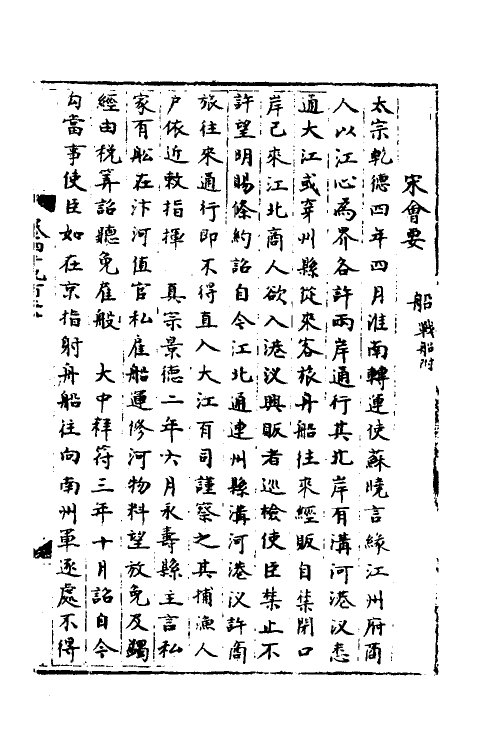 宋會要
船 戰船附
太宗乾德四年四月淮南轉運使蘇曉言緣江州府商
人以江心為界各許兩岸通行其北岸有溝河港汊悉
通大江或弃州縣從來客旅舟船往來經販自禁閉口
岸已來江北商人欲入港汊興販者巡檢使臣禁止不
許望明賜條約詔自今江北通連州縣溝河港汊許商
旅往來通行即不得直入大江有司謹察之其捕漁人
户依近敕指揮 真宗景德二年六月永壽縣主言私
家有舩在汴河值官私雇船運修河物料望放免及蠲
經由稅筭詔聽免雇般 大中祥符三年十月詔自今
勾當事使臣如在京指射舟船往向南州軍逐處不得